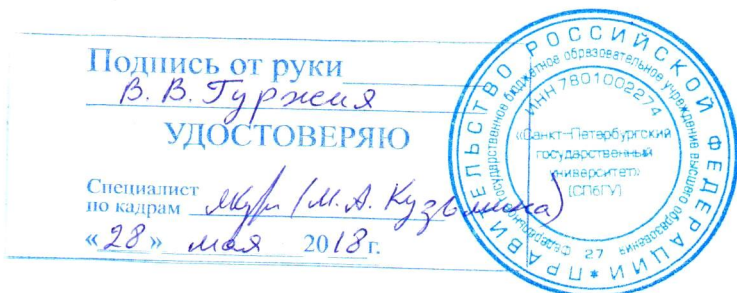 Подпись от руки
В. В. Гуржия
УДОСТОВЕРЯЮ
Специалист
по кадрам (М. А. Кузьмина)
«28» мая 2018 г.
ПРАВИТЕЛЬСТВО РОССИЙСКОЙ ФЕДЕРАЦИИ *
Федеральное государственное бюджетное образовательное учреждение высшего образования
ИНН 7801002274
«Санкт-Петербургский
государственный
университет»
(СПбГУ)
27